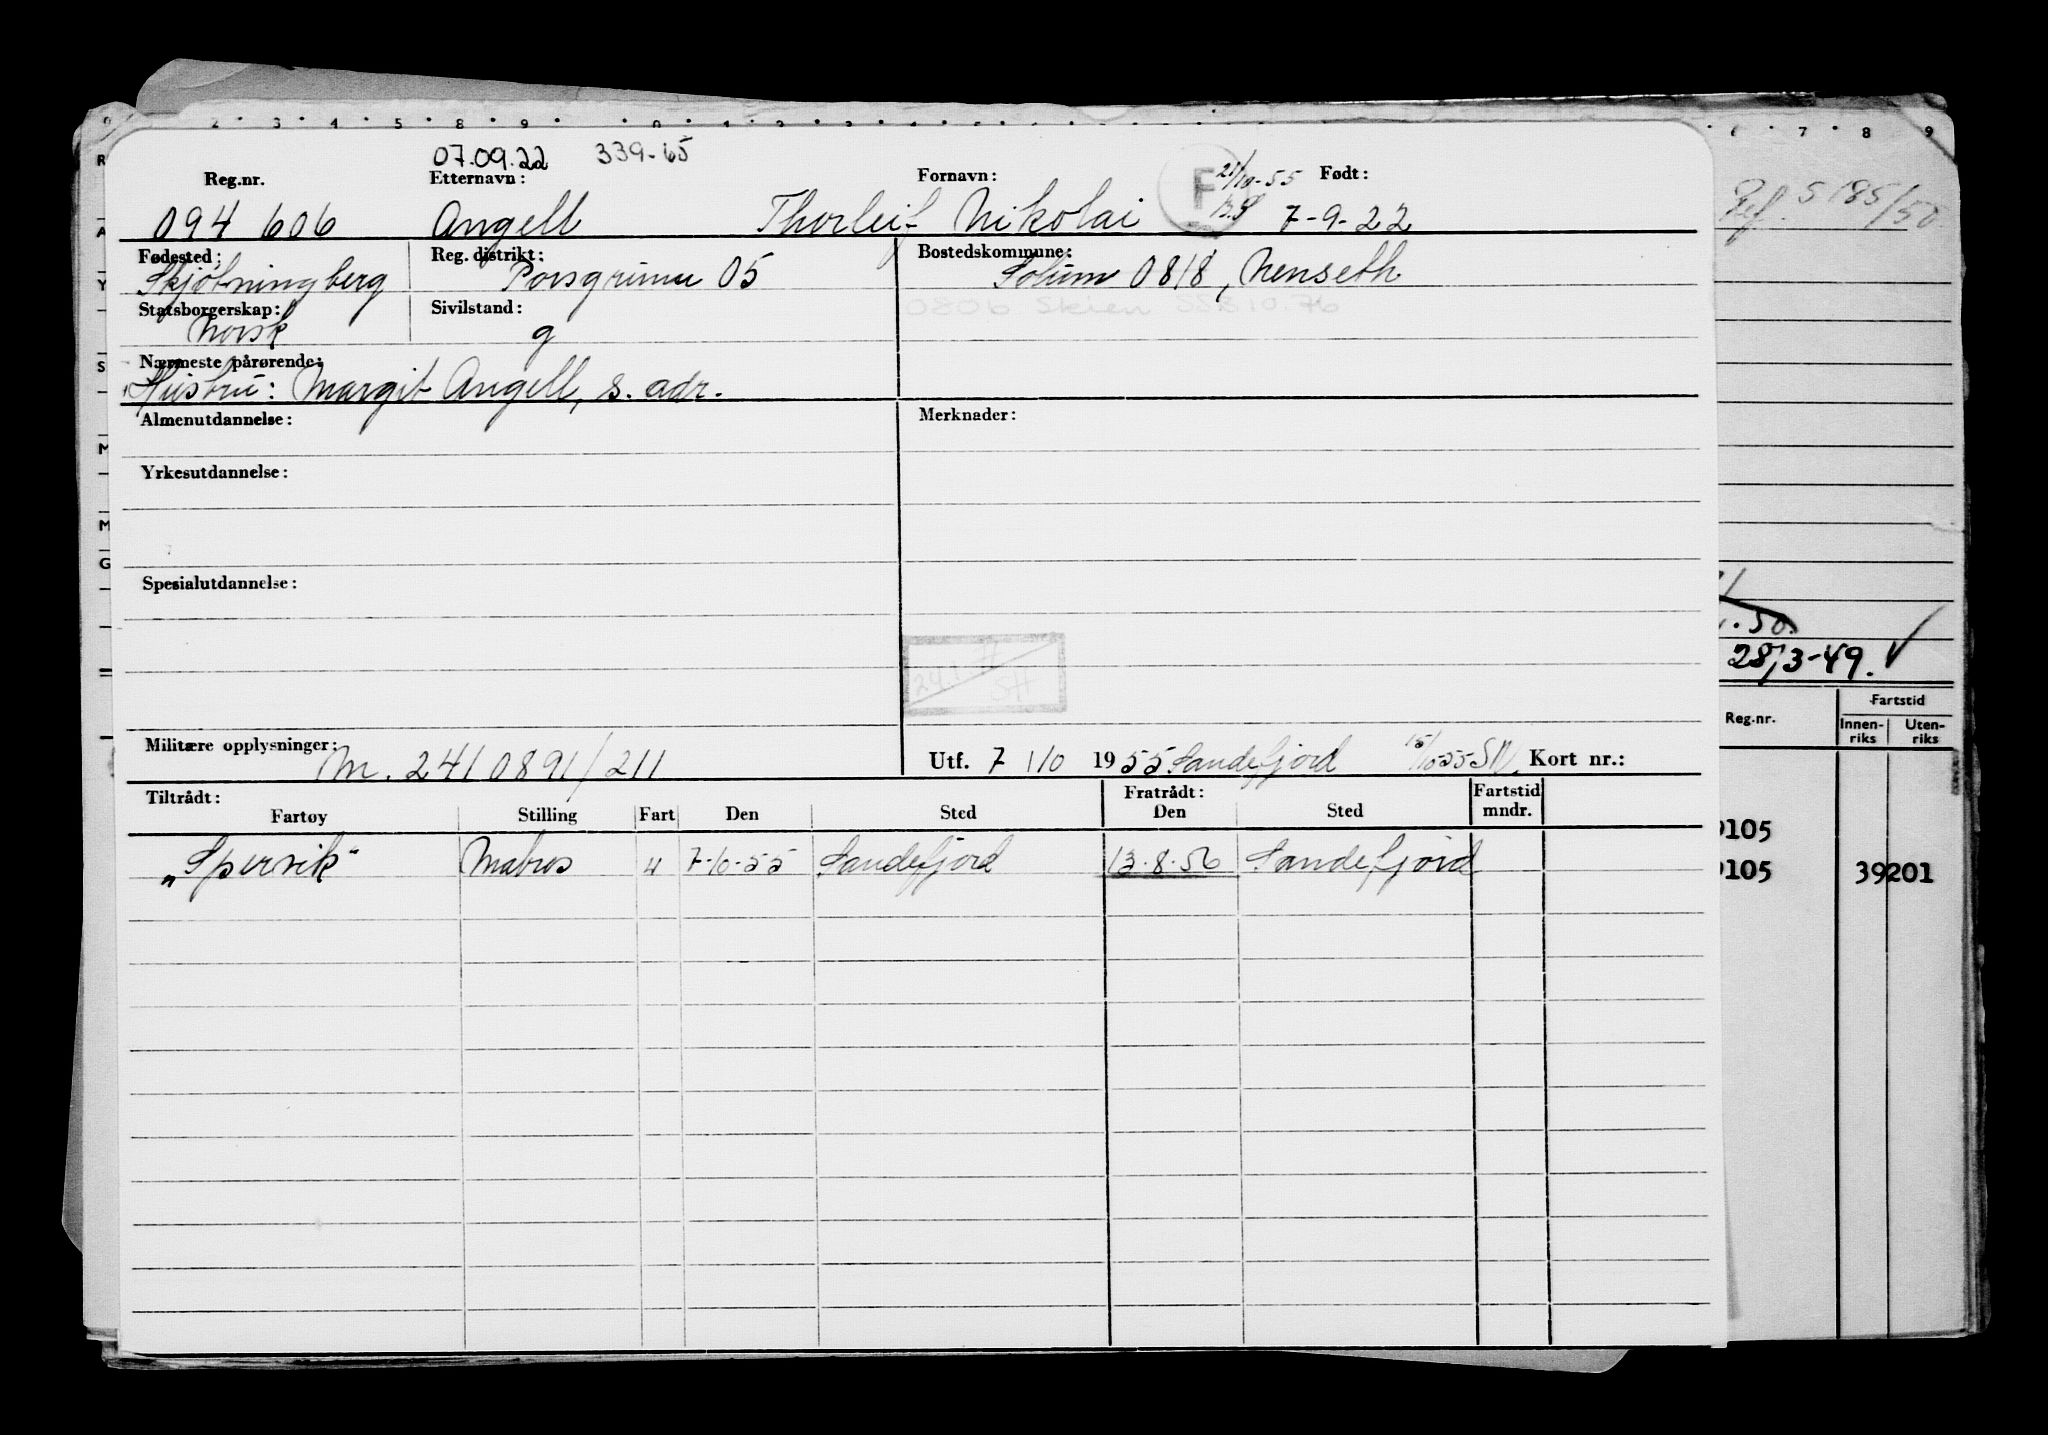 07.09.22 339-65
Reg.nr. Etternavn: Fornavn: F 21/10-55 Født:
094 606 Angell Thorleif Nikolai 7-9-22
Fødested: Reg. distrikt: Bostedskommune:
Skjøtningberg Porsgrunn 05 Solum 0818, Nenseth
Statsborgerskap: Sivilstand: 0806 Skien SSB 10.76
Norsk g
Nærmeste pårørende:
Hustru: Margit Angell, s. adr.
Almenutdannelse: Merknader:
Yrkesutdannelse:
Spesialutdannelse:
SH
Militære opplysninger: Utf. 7/10 1955 Sandefjord 15/10 55 Kort nr.:
M. 2410891/211
Tiltrådt: Fratrådt: Fartstid
Fartøy Stilling Fart Den Sted Den Sted mndr.
„Spervik" Matros U 7-10-55 Sandefjord 13.8.56 Sandefjord
Ref. 5185/50
28/3-49.
Fartstid
Reg.nr. Innen-riks Uten-riks
105
105 39201